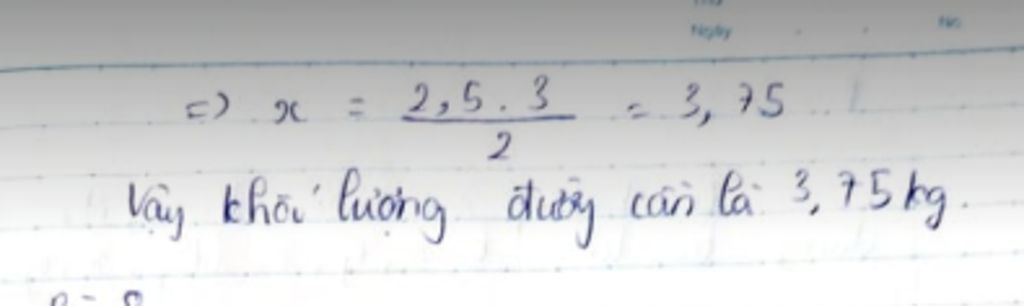 Ngày
No
=> x = 2,5 . 3 / 2 = 3,75
Vậy khối lượng đường cần là 3,75 kg.